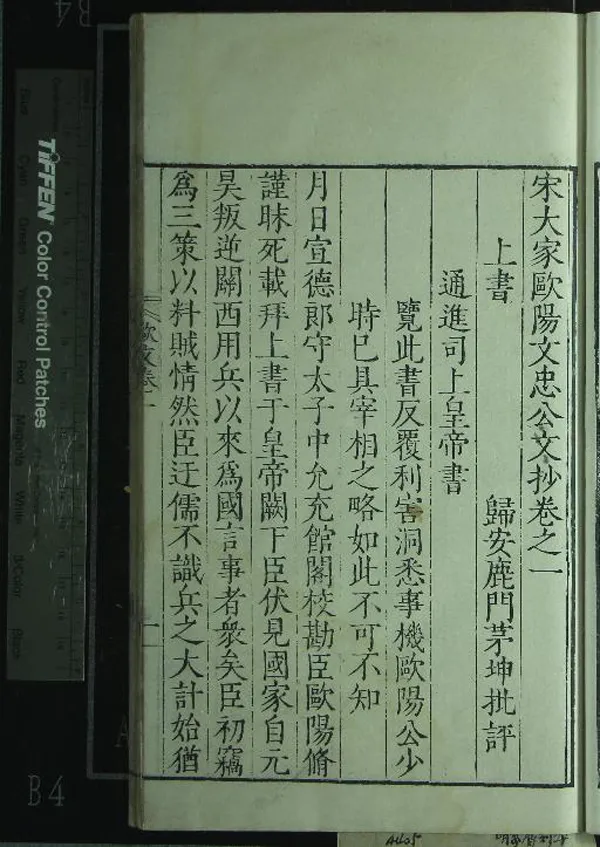 宋大家歐陽文忠公文抄卷之一
上書
歸安鹿門茅坤批評
通進司上皇帝書
覽此書反覆利害洞悉事機歐陽公少
時已具宰相之略如此不可不知
月日宣德郎守太子中允充館閣校勘臣歐陽脩
謹昧死載拜上書于皇帝闕下臣伏見國家自元
昊叛逆關西用兵以來爲國言事者衆矣臣初竊
爲三策以料賊情然臣迂儒不識兵之大計始猶
歐文卷一
一
TIFFEN Color Control Patches
Blue Cyan Green Yellow Red Magenta White 3/Color Black
B4
B4
A